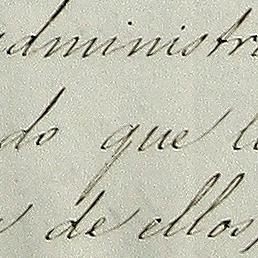 administr
do que l
de ellos,